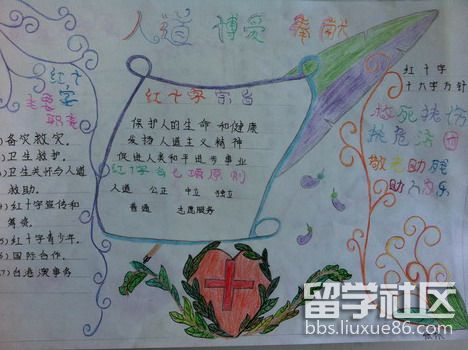 人道 博爱 奉献
红十字会
主要
职责
1)备灾救灾.
2)卫生救护.
3)卫生关怀与人道
救助.
4)红十字宣传和
筹资.
5)红十字青少年.
6)国际合作.
7)台港澳事务
红十字宗旨
保护人的生命和健康
发扬人道主义精神
促进人类和平进步事业
红十字会七项原则
人道 公正 中立 独立
普遍 志愿服务
红十字
十六字方针
救死扶伤
扶危济困
敬老助残
助人为乐
留学社区
bbs.liuxue86.com